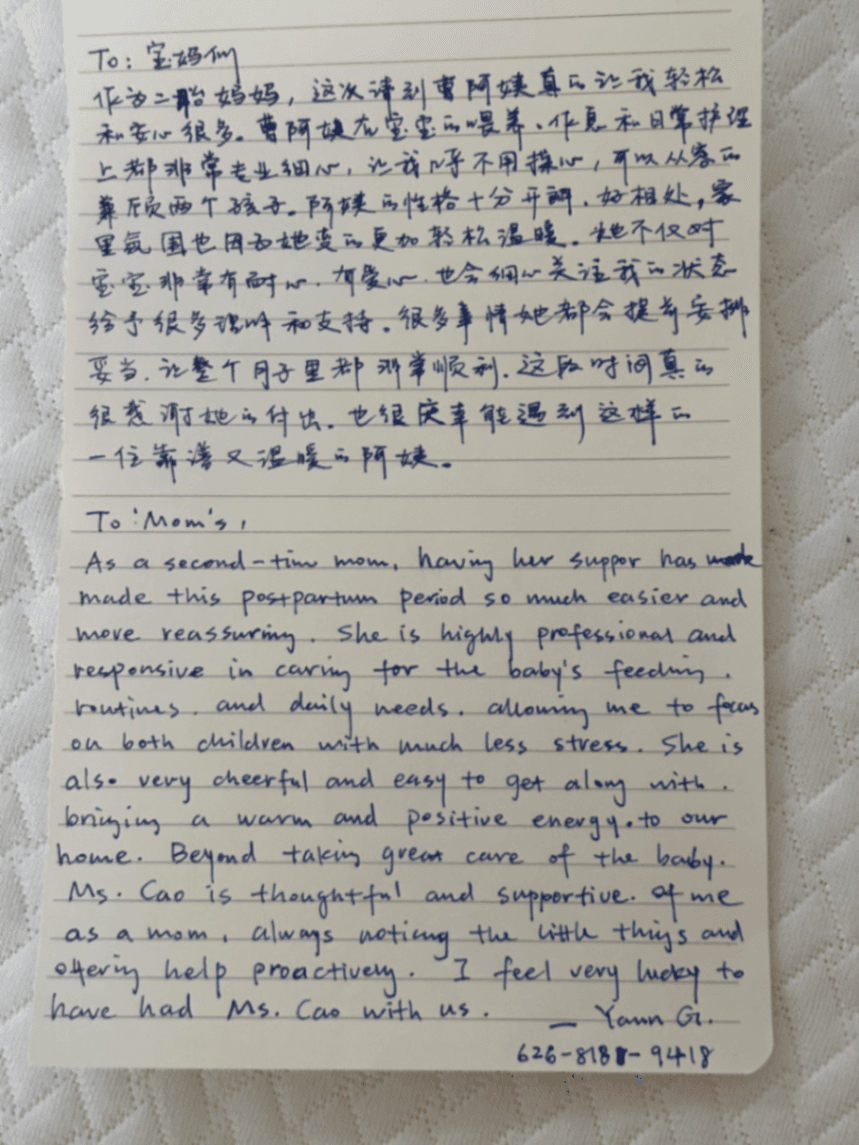 To: 宝妈们
作为二胎妈妈，这次请到曹阿姨真的让我轻松
和安心很多。曹阿姨在宝宝的喂养、作息和日常护理
上都非常专业细心，让我几乎不用操心，可以从容的
兼顾两个孩子。阿姨的性格十分开朗、好相处，家
里氛围也因为她变的更加轻松温暖。她不仅对
宝宝非常有耐心、有爱心，也会细心关注我的状态
给予很多理解和支持。很多事情她都会提前安排
妥当，让整个月子里都非常顺利。这段时间真的
很感谢她的付出。也很庆幸能遇到这样的
一位靠谱又温暖的阿姨。
To 'Mom's,
As a second-time mom, having her suppor has
made this postpartum period so much easier and
more reassuring. She is highly professional and
responsive in caring for the baby's feeding.
routines. and daily needs. allowing me to focus
on both children with much less stress. She is
also very cheerful and easy to get along with.
bringing a warm and positive energy. to our
home. Beyond taking great care of the baby.
Ms. Cao is thoughtful and supportive. of me
as a mom, always noticing the little things and
offering help proactively. I feel very lucky to
have had Ms. Cao with us.
— Yann G.
626-818-9418